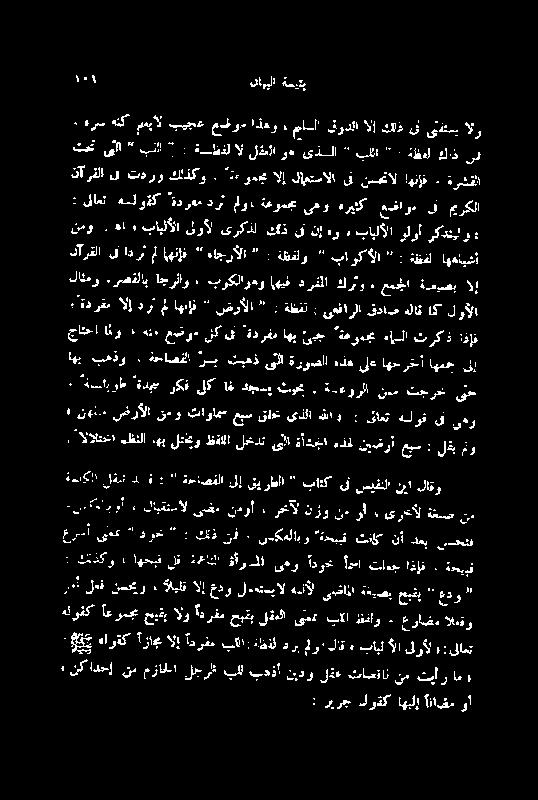 ١٠٦ يتيمة البيان
ولا يستفتى فى ذلك إلا الذوق السليم ، وهذا موضع عجيب لا يعلم كنه سره ،
فمن ذلك لفظة : " اللب " الـذى هو العقل لا لفظـة : " اللب " التى تحت
القشرة . فإنها لا تحسن فى الاستعمال إلا مجموعة ، وكذلك وردت فى القرآن
الكريم فى مواضع كثيرة وهى مجموعة ، ولم ترد مفردة كقولـه تعالى :
« وليتذكر أولو الألباب » و« إن فى ذلك لذكرى لأولى الألباب » اه . ومن
أشباهها لفظة : " الأكواب " ولفظة : " الأرجاء " فإنها لم تردا فى القرآن
إلا بصيغـة الجمع ، وترك المفرد فيها وهو الكوب ، والرجا بالقصر . ومثال
الأول كما قاله صادق الرافعى : لفظة : " الأرض " فإنها لم ترد إلا مفردة ،
فإذا ذكرت السماء مجموعة جيئ بها مفردة فى كل موضع منه ، ولما احتاج
إلى جمعها أخرجها على هذه الصورة التى ذهبت بسرّ الفصاحة ، وذهب بها
حتى خرجت من الروعـة . بحيث يسجد لها كل فكر سجدة طويلـة ،
وهى فى قولـه تعالى : « الله الذى خلق سبع سماوات ومن الأرض مثلهن »
ولم يقل : سبع أرضين لهذه الجسأة التى تدخل اللفظ ويختل بها النظم اختلالا .
وقال ابن النفيس فى كتاب " الطريق إلى الفصاحة " : قـد تنقل الكلمة
من صيغة لأخرى ، أو من وزن لآخر ، أو من مضى لاستقبال ، أو بالعكس ،
فتحسن بعد أن كانت قبيحة وبالعكس ، فمن ذلك : " خود " بمعنى أسرع
قبيحة . فإذا جعلت اسما خوداً وهى المـرأة الناعمة قل قبحها ، وكذلك :
" ودع " يقبح بصيغة الماضى لأنه لا يستعمل ودع إلا قليلاً ، ويحسن فعل أمر
وفعلا مضارع . ولفظ اللب بمعنى العقل يقبح مفرداً ولا يقبح مجموعاً كقوله
تعالى : « لأولى الألباب » قال : ولم يرد لفظة : اللب مفرداً إلا مجازاً كقوله ﷺ :
« ما رأيت من ناقصات عقل ودين أذهب للب الرجل الحازم من إحداكن »
أو مضافا إليها كقولـه جرير :